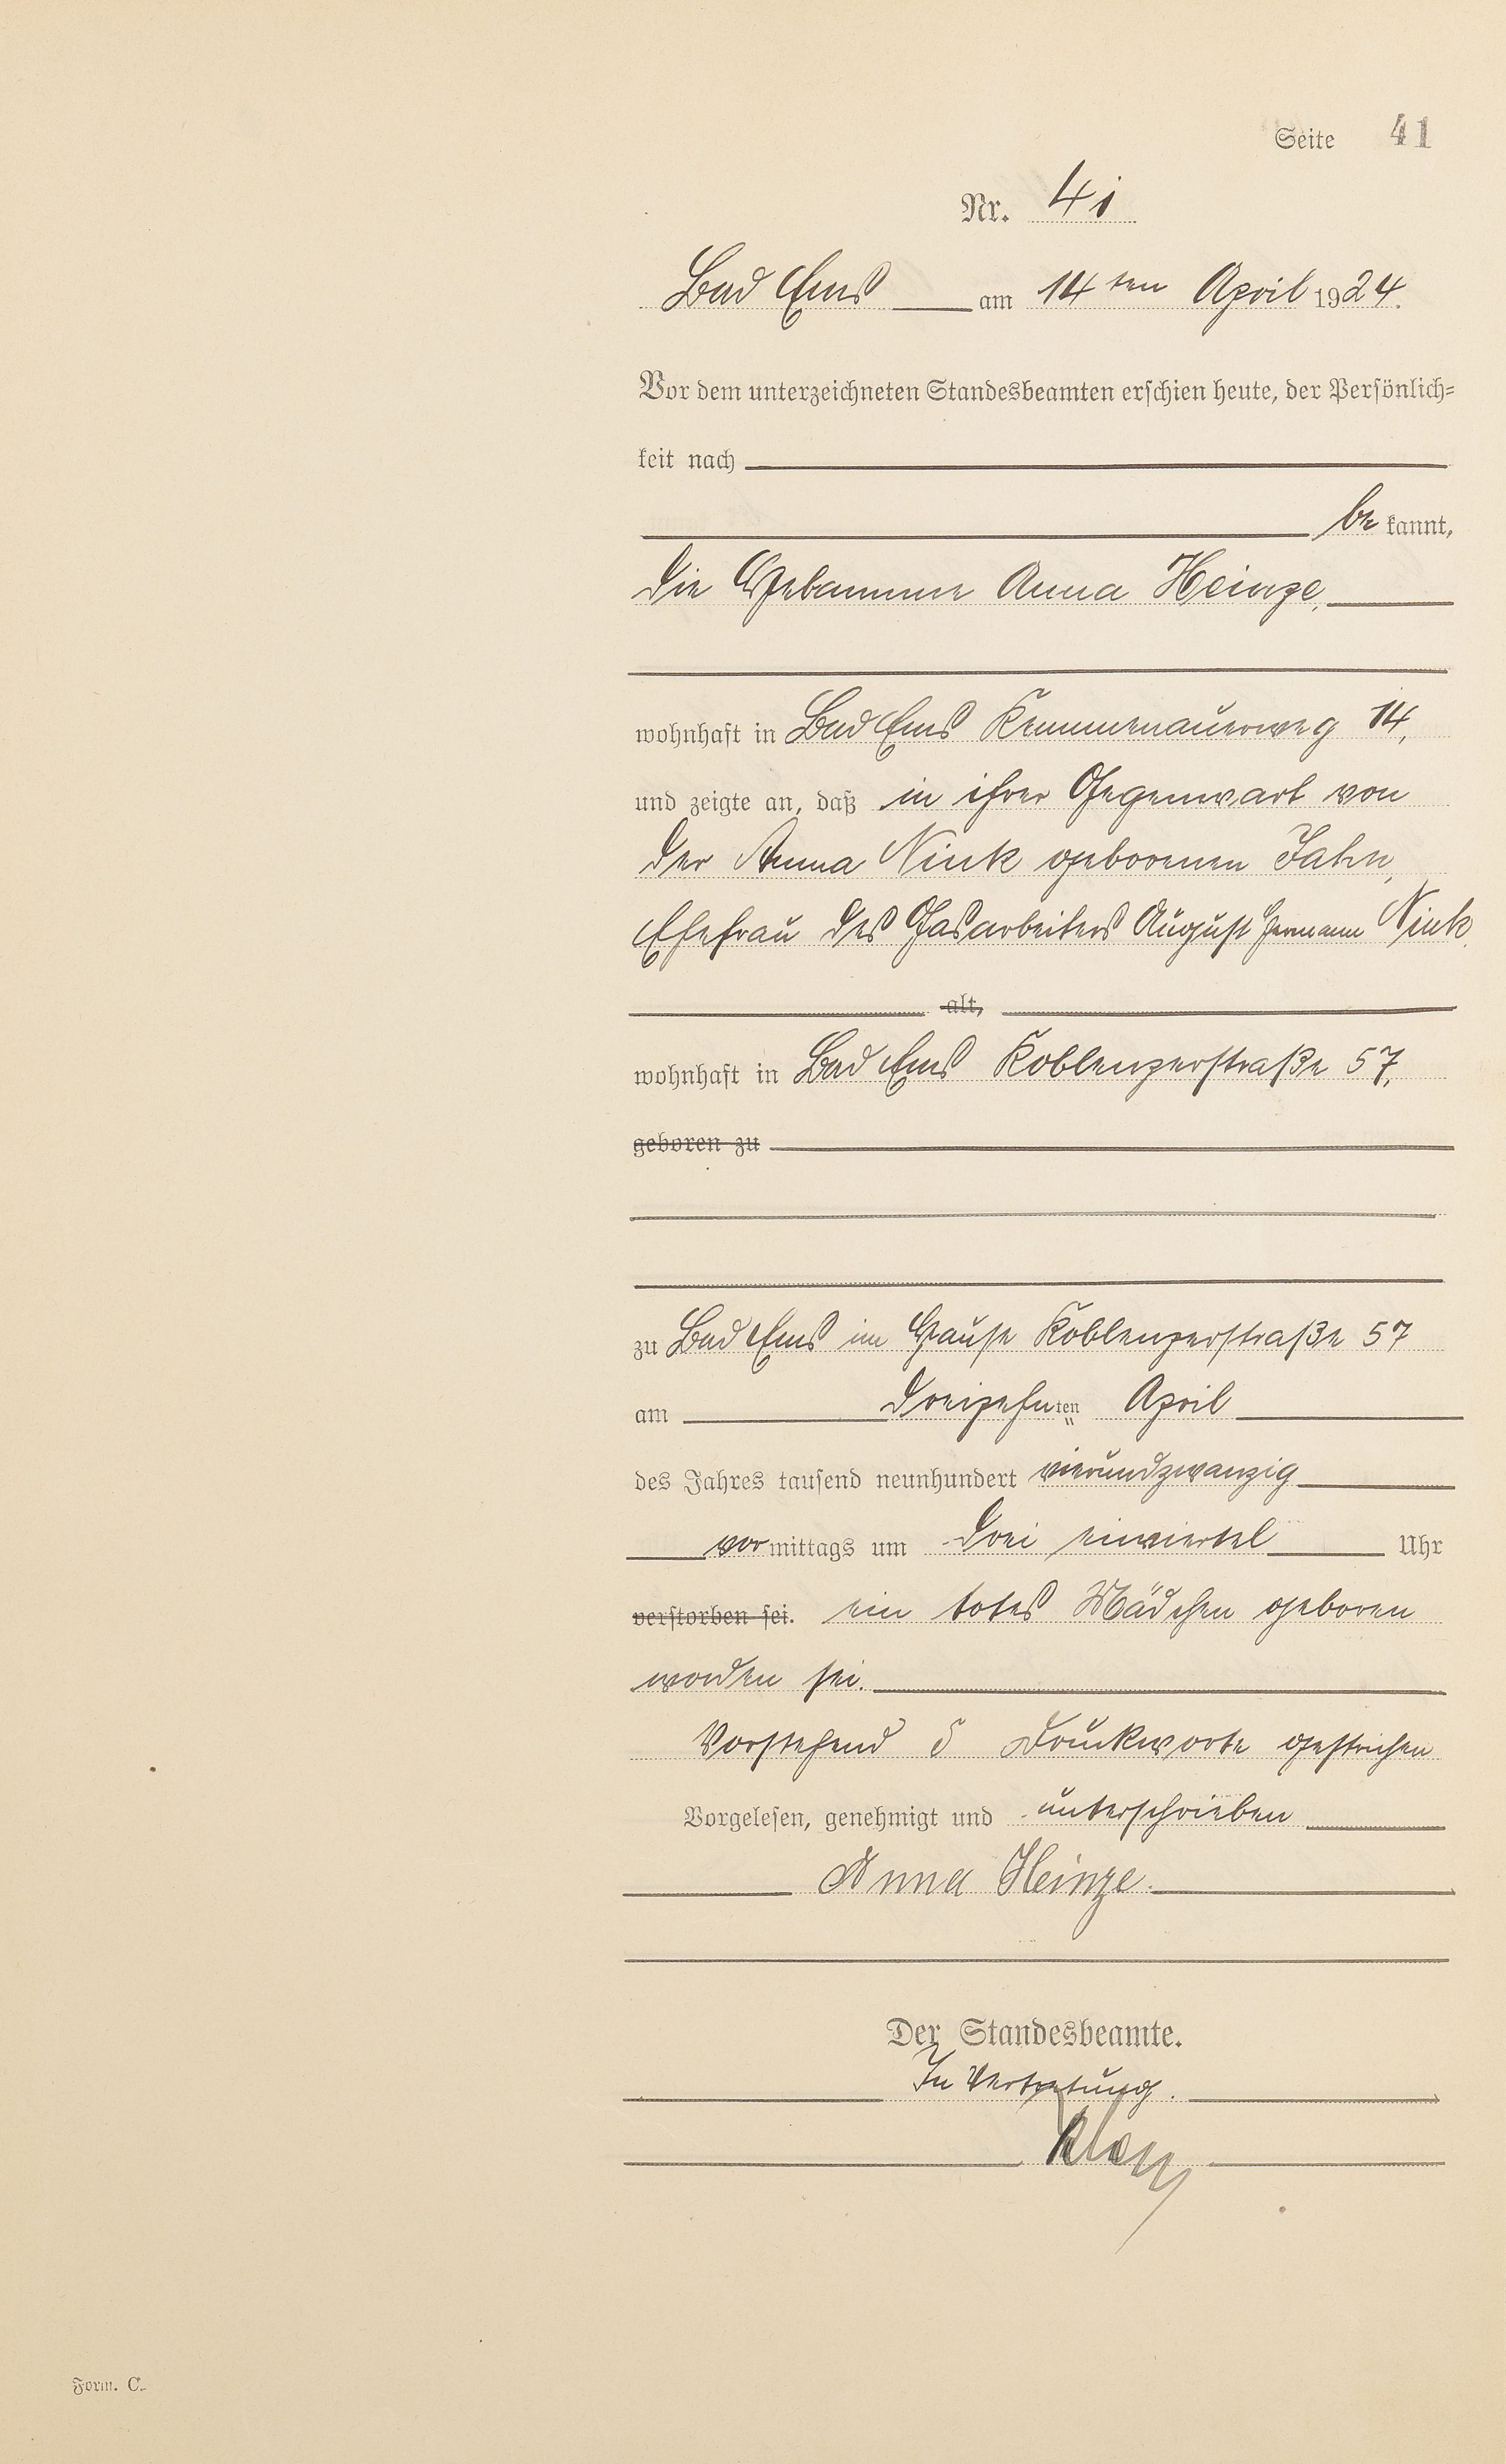 Seite 41
Nr. 41
Bad Ems am 14ten April 1924.
Vor dem unterzeichneten Standesbeamten erschien heute, der Persönlich-
keit nach
bekannt,
die Hebamme Anna Heinze,
wohnhaft in Bad Ems Kemmenauerweg 14,
und zeigte an, daß in ihrer Gegenwart von
der Anna Nink geborenen Jahn,
Ehefrau des Gasarbeiters August Hermann Nink,
alt,
wohnhaft in Bad Ems Koblenzerstraße 57,
geboren zu
zu Bad Ems im Hause Koblenzerstraße 57
am dreizehnten April
des Jahres tausend neunhundert vierundzwanzig
vormittags um drei einviertel Uhr
verstorben sei. ein totes Mädchen geboren
worden sei.
Vorstehend 5 Druckworte gestrichen
Vorgelesen, genehmigt und unterschrieben
Anna Heinze.
Der Standesbeamte.
In Vertretung.
Form. C.